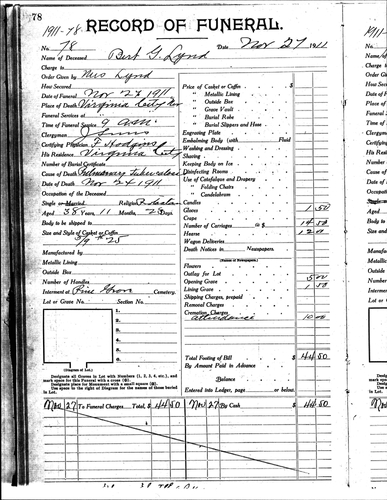 78
1911-78.
RECORD OF FUNERAL.
No. 78 Date Nov 27 1911
Name of Deceased Bert G. Lynd
Charge to
Order Given by Mrs Lynd
How Secured
Date of Funeral Nov 27 1911
Place of Death Virginia City Nev
Funeral Services at
Time of Funeral Service 9 a.m.
Clergyman
Certifying Physician F. Hodgins
His Residence Virginia City
Number of Burial Certificate
Cause of Death Pulmonary Tuberculosis
Date of Death Nov 24 1911
Occupation of the Deceased
Single or Married. Religion
Aged 38 Years, 11 Months, 23 Days.
Body to be shipped to
Size and Style of Casket or Coffin
5/9 * 25
Manufactured by
Metallic Lining
Outside Box
Number of Handles
Interment at Pine Grove Cemetery.
Lot or Grave No. Section No.
1.
2.
3.
4.
5.
6.
(Diagram of Lot.)
Designate all Graves in Lot with Numbers (1, 2, 3, 4, etc.), and
mark space for this Funeral with a cross (✠).
Designate place for Monument with a small square (◻).
Use space to the right of Diagram for the names of those buried
in Lot.
Price of Casket or Coffin $
" Metallic Lining
" Outside Box
" Grave Vault
" Burial Robe
" Burial Slippers and Hose
Engraving Plate
Embalming Body (with Fluid)
Washing and Dressing
Shaving
Keeping Body on Ice
Disinfecting Rooms
Use of Catafalque and Drapery
" Folding Chairs
" Candelabrum
Candles
Gloves 1 50
Crape
Number of Carriages @ $ 14 50
Hearse 12 00
Wagon Deliveries
Death Notices in Newspapers.
(Names of Newspapers.)
Flowers
Outlay for Lot
Opening Grave 5 00
Lining Grave 1 50
Shipping Charges, prepaid
Removal Charges
Cremation Charges
attendance 10 00
Total Footing of Bill $ 44 50
By Amount Paid in Advance
Balance $
Entered into Ledger, page or below.
Nov 27 To Funeral Charges Total, $ 44 50 Nov 27 By Cash $ 44 50
1911-
No.